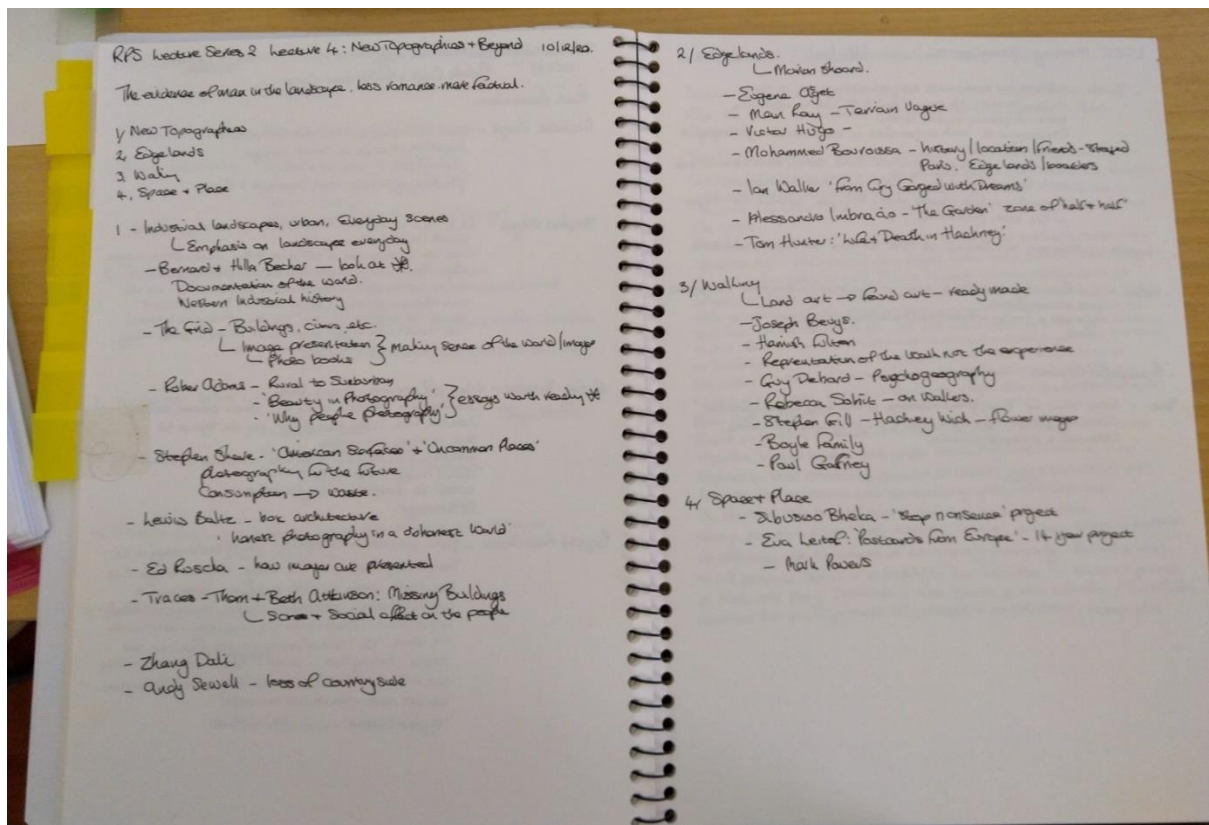 RPS Lecture Series 2 Lecture 4: New Topographics + Beyond 10/12/20.
The evidence of man in the landscape, less romance more factual.
1/ New Topographics
2, Edgelands
3. Walking
4, Space + Place
1 - Industrial landscapes, urban, Everyday scenes
Emphasis on landscape everyday
- Bernard + Hilla Becher — look at
Documentation of the world.
Western Industrial history
- The Grid - Buildings, etc.
Image presentation } making sense of the world/images
Photo books
- Rober Adams - Rural to Suburban
- 'Beauty in Photography', } essays worth reading
- 'Why people photography'
- Stephen Shore - 'American Surfaces' + 'Uncommon Places'
photography for the future
Consumption → waste.
- Lewis Baltz - box architecture
' honest photography in a dishonest world'
- Ed Ruscha - how images are presented
- Traces - Thom + Beth Atkinson: Missing Buildings
Scars + Social affect on the people
- Zhang Dali
- Andy Sewell - loss of countryside
2/ Edgelands.
Marion Shoard.
- Eugene Atget
- Man Ray - Terrain Vague
- Victor Hugo -
- Mohammed Bourouissa - history/location/friends - Staged
Paris, Edgelands/boarders
- Ian Walker 'from City Gorged with Dreams'
- Alessandro Imbriaco - 'The Garden' zone of 'half + half'
- Tom Hunter: 'Life + Death in Hackney'
3/ Walking
Land art → found art - ready made
- Joseph Beuys.
- Hamish Fulton
- Representation of the walk not the experience
- Guy Debord - Psychogeography
- Rebecca Solnit - on Walkers.
- Stephen Gill - Hackney Wick - flower images
- Boyle Family
- Paul Gaffney
4, Space + Place
- Sibusiso Bheka - 'Stop nonsense' project
- Eva Leitolf: 'Postcards from Europe' - 14 year project
- Mark Powers